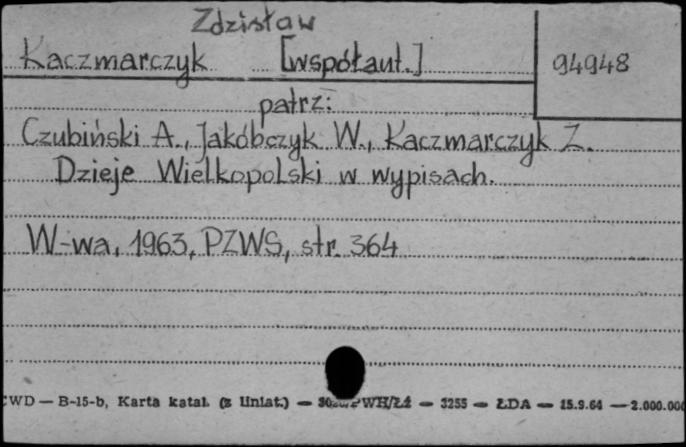 Zdzisław
Kaczmarczyk [współaut.] 94948
patrz:
Czubiński A., Jakóbczyk W., Kaczmarczyk Z.
Dzieje Wielkopolski w wypisach.
W-wa, 1963, PZWS, str. 364
CWD — B-15-b, Karta katal. (z liniat.) — PWH/Łź — 3255 — ŁDA — 15.9.64 — 2.000.000